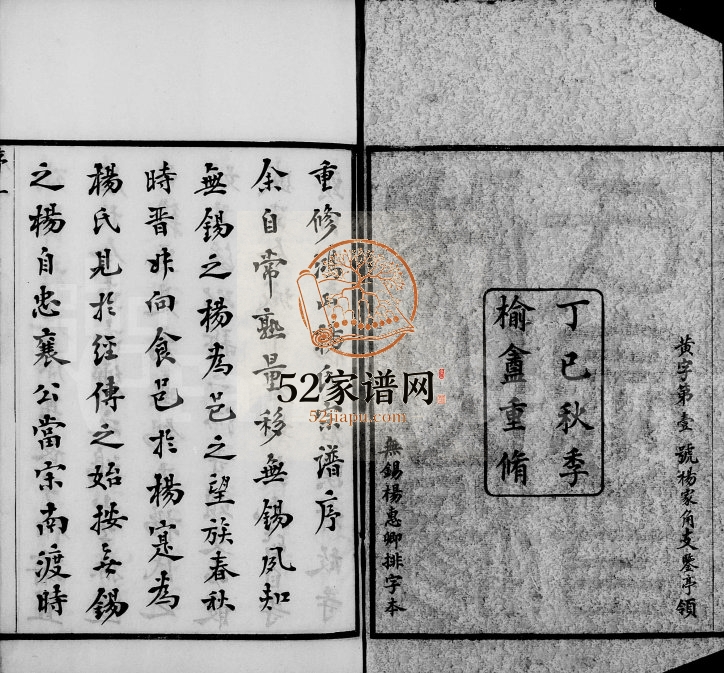 黄字第壹號楊家角支鑒亭領
丁巳秋季
榆盦重脩
無錫楊惠卿排字本
重修鴻山楊氏宗譜序
余自常熟量移無錫夙知
無錫之楊為邑之望族春秋
時晋叔向食邑於楊寔為
楊氏見於經傳之始按無錫
之楊自忠襄公當宋南渡時
序一
52家谱网
52jiapu.com